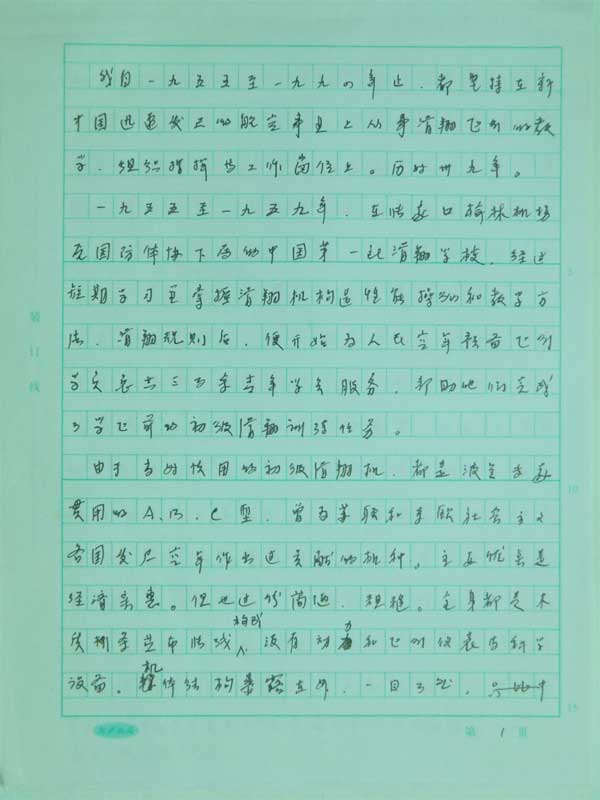 我自一九五五至一九九四年止,都是持在新
中国迅速发展的航空事业上从事滑翔飞行的教
学、组织指挥与工作岗位上。历时卅九年。
一九五五至一九五九年,在张家口榆林机场
原国防体协下属的中国第一所滑翔学校,经过
短期学习及掌握滑翔机构造性能操纵和教学方
法、滑翔规则后,便开始为人民空军预备飞行
学员总共三百余青年学员服务,帮助他们完成
了学飞前的初级滑翔训练任务。
由于当时使用的初级滑翔机,都是波兰
贯用的A、B、C型,曾为苏联和东欧社会主义
各国发展空军作出过贡献的机种。主要优点是
经济实惠。但也过份简陋、粗糙。全身都是木
质和蒙布张线构成,没有动力和飞行仪表与科学
设备。机体结构暴露在外,一目了然,
第 1 页
装
订
线
5
10
15